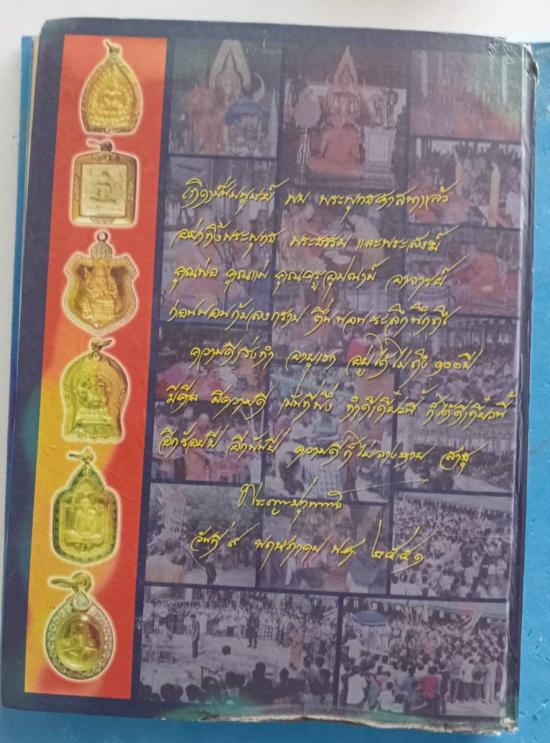 เกิดเป็นมนุษย์ พบ พระพุทธศาสนาแล้ว
อย่าทิ้งพระพุทธ พระธรรม และพระสงฆ์
คุณพ่อ คุณแม่ คุณครูอุปัชฌาย์ อาจารย์
ก่อนนอนก้มลงกราบ ตื่นนอนระลึกนึกถึง
ความดีเร่งทำ อายุเรา อยู่ได้ไม่ถึง ๑๐๐ปี
มีศีล มีความดี เป็นที่พึ่ง ทำดีเดี๋ยวนี้ ก็ได้ดีเดี๋ยวนี้
อีกร้อยปี อีกพันปี ความดีก็ไม่จางหาย สาธุ
วันที่ ๙ พฤษภาคม พศ. ๒๕๕๑